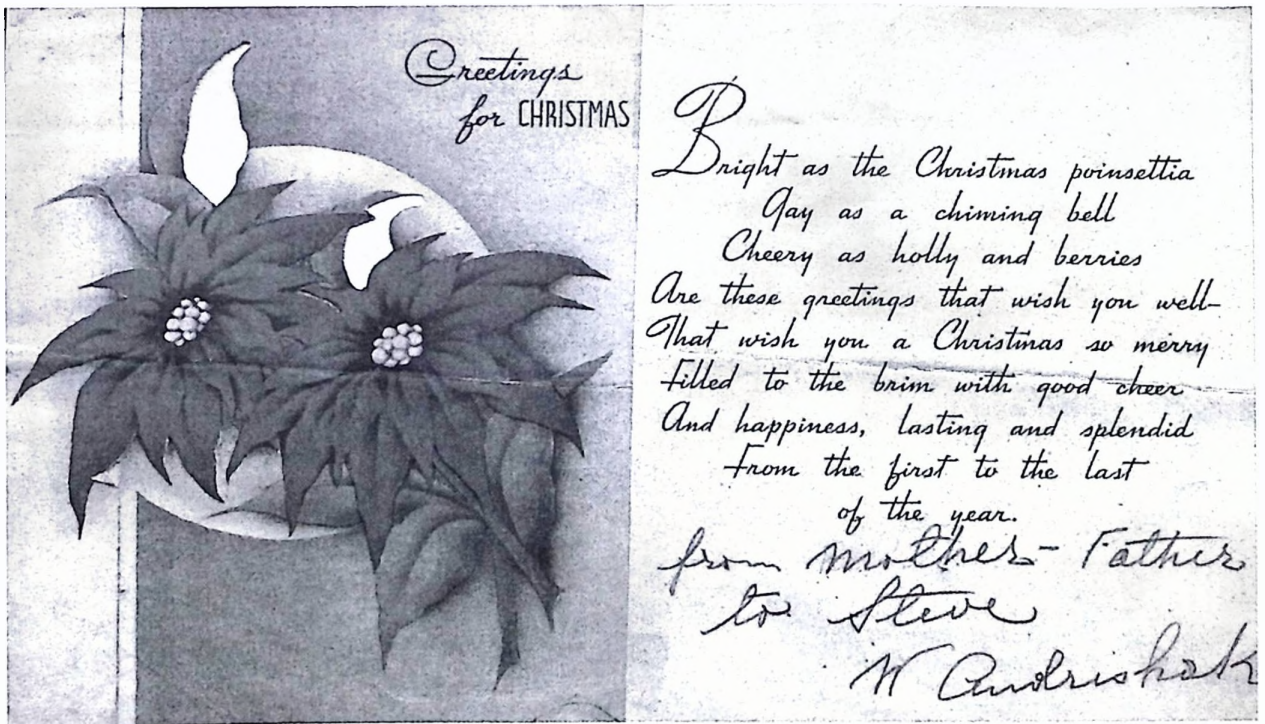 Greetings
for CHRISTMAS
Bright as the Christmas poinsettia
Gay as a chiming bell
Cheery as holly and berries
Are these greetings that wish you well—
That wish you a Christmas so merry
Filled to the brim with good cheer
And happiness, lasting and splendid
From the first to the last
of the year.
from Mother - Father
to Steve
W Andrishak